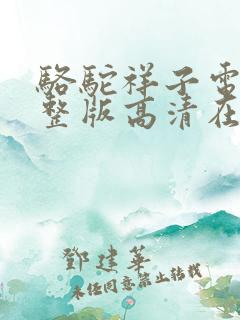 駱駝祥子電
整版高清在
鄧建華
未经同意禁止转载